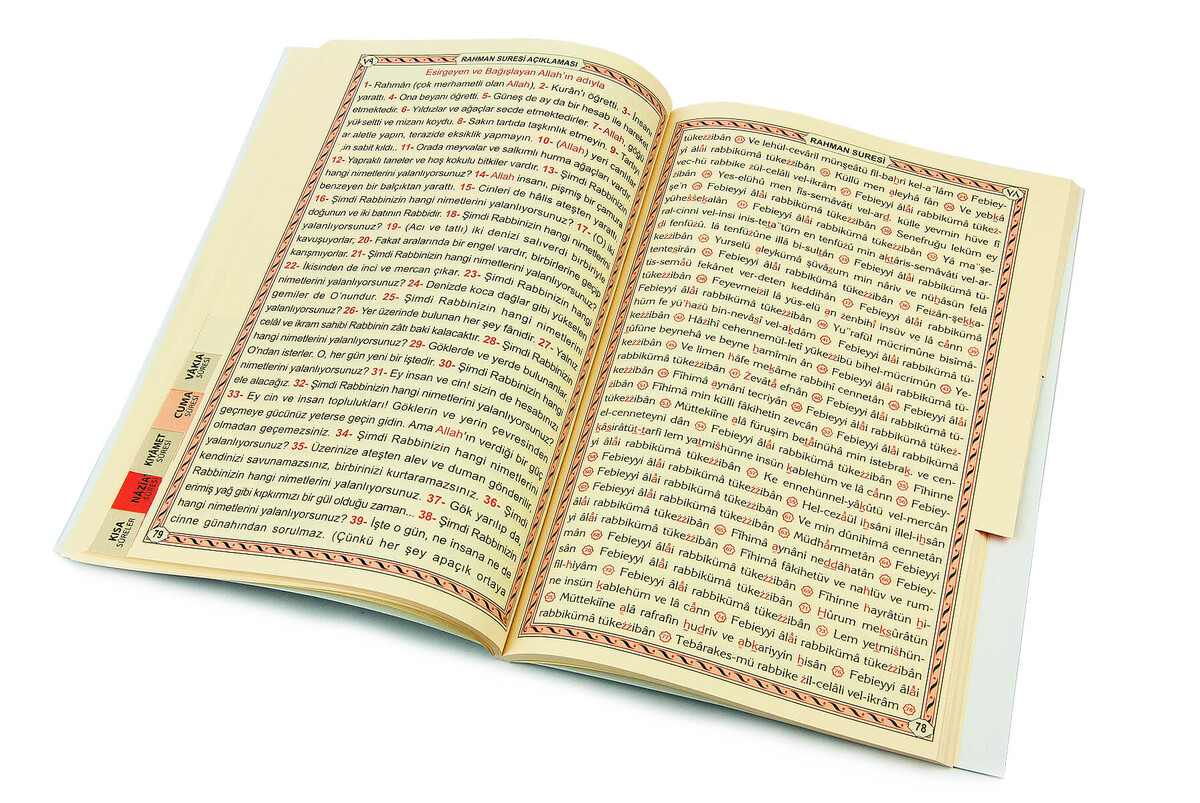 ٧٨
RAHMAN SURESİ AÇIKLAMASI
Esirgeyen ve Bağışlayan Allah'ın adıyla
1- Rahmân (çok merhametli olan Allah), 2- Kurân'ı öğretti. 3- İnsanı
yarattı. 4- Ona beyanı öğretti. 5- Güneş de ay da bir hesab ile hareket
etmektedir. 6- Yıldızlar ve ağaçlar secde etmektedirler. 7- Allah, göğü
yükseltti ve mizanı koydu. 8- Sakın tartıda taşkınlık etmeyin. 9- Tartıyı
aletle yapın, terazide eksiklik yapmayın. 10- (Allah) yeri canlılar
için sabit kıldı.. 11- Orada meyvalar ve salkımlı hurma ağaçları vardır.
12- Yapraklı taneler ve hoş kokulu bitkiler vardır. 13- Şimdi Rabbinizin
hangi nimetlerini yalanlıyorsunuz? 14- Allah insanı, pişmiş bir çamura
benzeyen bir balçıktan yarattı. 15- Cinleri de hâlis ateşten yarattı.
16- Şimdi Rabbinizin hangi nimetlerini yalanlıyorsunuz? 17- (O) iki
doğunun ve iki batının Rabbidir. 18- Şimdi Rabbinizin hangi nimetlerini
yalanlıyorsunuz? 19- (Acı ve tatlı) iki denizi salıverdi birbiriyle
kavuşuyorlar; 20- Fakat aralarında bir engel vardır, birbirlerine geçip
karışmıyorlar. 21- Şimdi Rabbinizin hangi nimetlerini yalanlıyorsunuz?
22- İkisinden de inci ve mercan çıkar. 23- Şimdi Rabbinizin hangi
nimetlerini yalanlıyorsunuz? 24- Denizde koca dağlar gibi yükselen
gemiler de O'nundur. 25- Şimdi Rabbinizin hangi nimetlerini
yalanlıyorsunuz? 26- Yer üzerinde bulunan her şey fânidir. 27- Yalnız
celâl ve ikram sahibi Rabbinin zâtı baki kalacaktır. 28- Şimdi Rabbinizin
hangi nimetlerini yalanlıyorsunuz? 29- Göklerde ve yerde bulunanlar,
O'ndan isterler. O, her gün yeni bir iştedir. 30- Şimdi Rabbinizin hangi
nimetlerini yalanlıyorsunuz? 31- Ey insan ve cin! sizin de hesabınızı
ele alacağız. 32- Şimdi Rabbinizin hangi nimetlerini yalanlıyorsunuz?
33- Ey cin ve insan toplulukları! Göklerin ve yerin çevresinden
geçmeye gücünüz yeterse geçin gidin. Ama Allah'ın verdiği bir güç
olmadan geçemezsiniz. 34- Şimdi Rabbinizin hangi nimetlerini
yalanlıyorsunuz? 35- Üzerinize ateşten alev ve duman gönderilir,
kendinizi savunamazsınız, birbirinizi kurtaramazsınız. 36- Şimdi
Rabbinizin hangi nimetlerini yalanlıyorsunuz. 37- Gök yarılıp da
erimiş yağ gibi kıpkırmızı bir gül olduğu zaman... 38- Şimdi Rabbinizin
hangi nimetlerini yalanlıyorsunuz? 39- İşte o gün, ne insana ne de
cinne günahından sorulmaz. (Çünkü her şey apaçık ortaya
78
VÂKIA
SÛRESİ
CUMA
SÛRESİ
KIYÂMET
SÛRESİ
NÂZİA
SÛRESİ
KISA
SÛRELER
RAHMAN SURESİ
٧٨
tükezzibân 23 Ve lehül-cevâril münşeâtü fil-bahri kel-a¨lâm 24 Febiey-
yi âlâi rabbikümâ tükezzibân 25 Küllü men aleyhâ fân 26 Ve yebkâ
vec-hü rabbike zül-celâli vel-ikrâm 27 Febieyyi âlâi rabbikümâ tükez-
zibân 28 Yes-elühû men fis-semâvâti vel-ard. Külle yevmin hüve fî
şe'n 29 Febieyyi âlâi rabbikümâ tükezzibân 30 Senefruğu leküm ey
yühessekalân 31 Febieyyi âlâi rabbikümâ tükezzibân 32 Yâ ma¨şe-
ral-cinni vel-insi inis-teta¨tüm en tenfüzû min aktâris-semâvâti vel-ar-
di fenfüzû. lâ tenfüzûne illâ bi-sultân 33 Febieyyi âlâi rabbikümâ tü-
kezzibân 34 Yurselü aleykümâ şüvâzum min nâriv ve nühâsün felâ
tentesirân 35 Febieyyi âlâi rabbikümâ tükezzibân 36 Feizân-şekka-
tis-semâü fekânet ver-deten keddihân 37 Febieyyi âlâi rabbikümâ
tükezzibân 38 Feyevmeizil lâ yüs-elü an zenbihî insüv ve lâ cânn 39
Febieyyi âlâi rabbikümâ tükezzibân 40 Yu¨raful mücrimûne bisîmâ-
hüm fe yü'hazü bin-nevâsî vel-akdâm 41 Febieyyi âlâi rabbikümâ tü-
kezzibân 42 Hâzihî cehennemül-letî yükezzibü bihel-mücrimûn 43 Ye-
tûfûne beynehâ ve beyne hamîmin ân 44 Febieyyi âlâi rabbikümâ tü-
kezzibân 45 Ve limen hâfe mekâme rabbihî cennetân 46 Febieyyi âlâi
rabbikümâ tükezzibân 47 Zevâtâ efnân 48 Febieyyi âlâi rabbikümâ tükez-
zibân 49 Fîhimâ aynâni tecriyân 50 Febieyyi âlâi rabbikümâ tükezzi-
bân 51 Fîhimâ min külli fâkihetin zevcân 52 Febieyyi âlâi rabbikümâ tü-
kezzibân 53 Müttekiîne alâ furuşim betâinühâ min istebrak. ve cen-
el-cenneteyni dân 54 Febieyyi âlâi rabbikümâ tükezzibân 55 Fîhinne
kâsirâtüt-tarfi lem yatmishünne insün kablehüm ve lâ cânn 56 Febieyyi
yi âlâi rabbikümâ tükezzibân 57 Ke ennehünnel-yâkûtü vel-mercân
58 Febieyyi âlâi rabbikümâ tükezzibân 59 Hel-cezâül ihsâni illel-ihsân
60 Febieyyi âlâi rabbikümâ tükezzibân 61 Ve min dûnihimâ cennetân
62 Febieyyi âlâi rabbikümâ tükezzibân 63 Müdhâmmetân 64 Febieyyi
âlâi rabbikümâ tükezzibân 65 Fîhimâ aynâni neddâhatân 66 Febiey-
yi âlâi rabbikümâ tükezzibân 67 Fîhimâ fâkihetüv ve nahlüv ve rum-
mân 68 Febieyyi âlâi rabbikümâ tükezzibân 69 Fîhinne hayrâtün hi-
sân 70 Febieyyi âlâi rabbikümâ tükezzibân 71 Hûrum meksûrâtün
fil-hiyâm 72 Febieyyi âlâi rabbikümâ tükezzibân 73 Lem yetmishün-
ne insün kablehüm ve lâ cânn 74 Febieyyi âlâi rabbikümâ tükezzibân
75 Müttekiîne alâ rafrafin hudriv ve abkariyyin hisân 76 Febieyyi âlâi
rabbikümâ tükezzibân 77 Tebârakes-mü rabbike zil-celâli vel-ikrâm 78
78